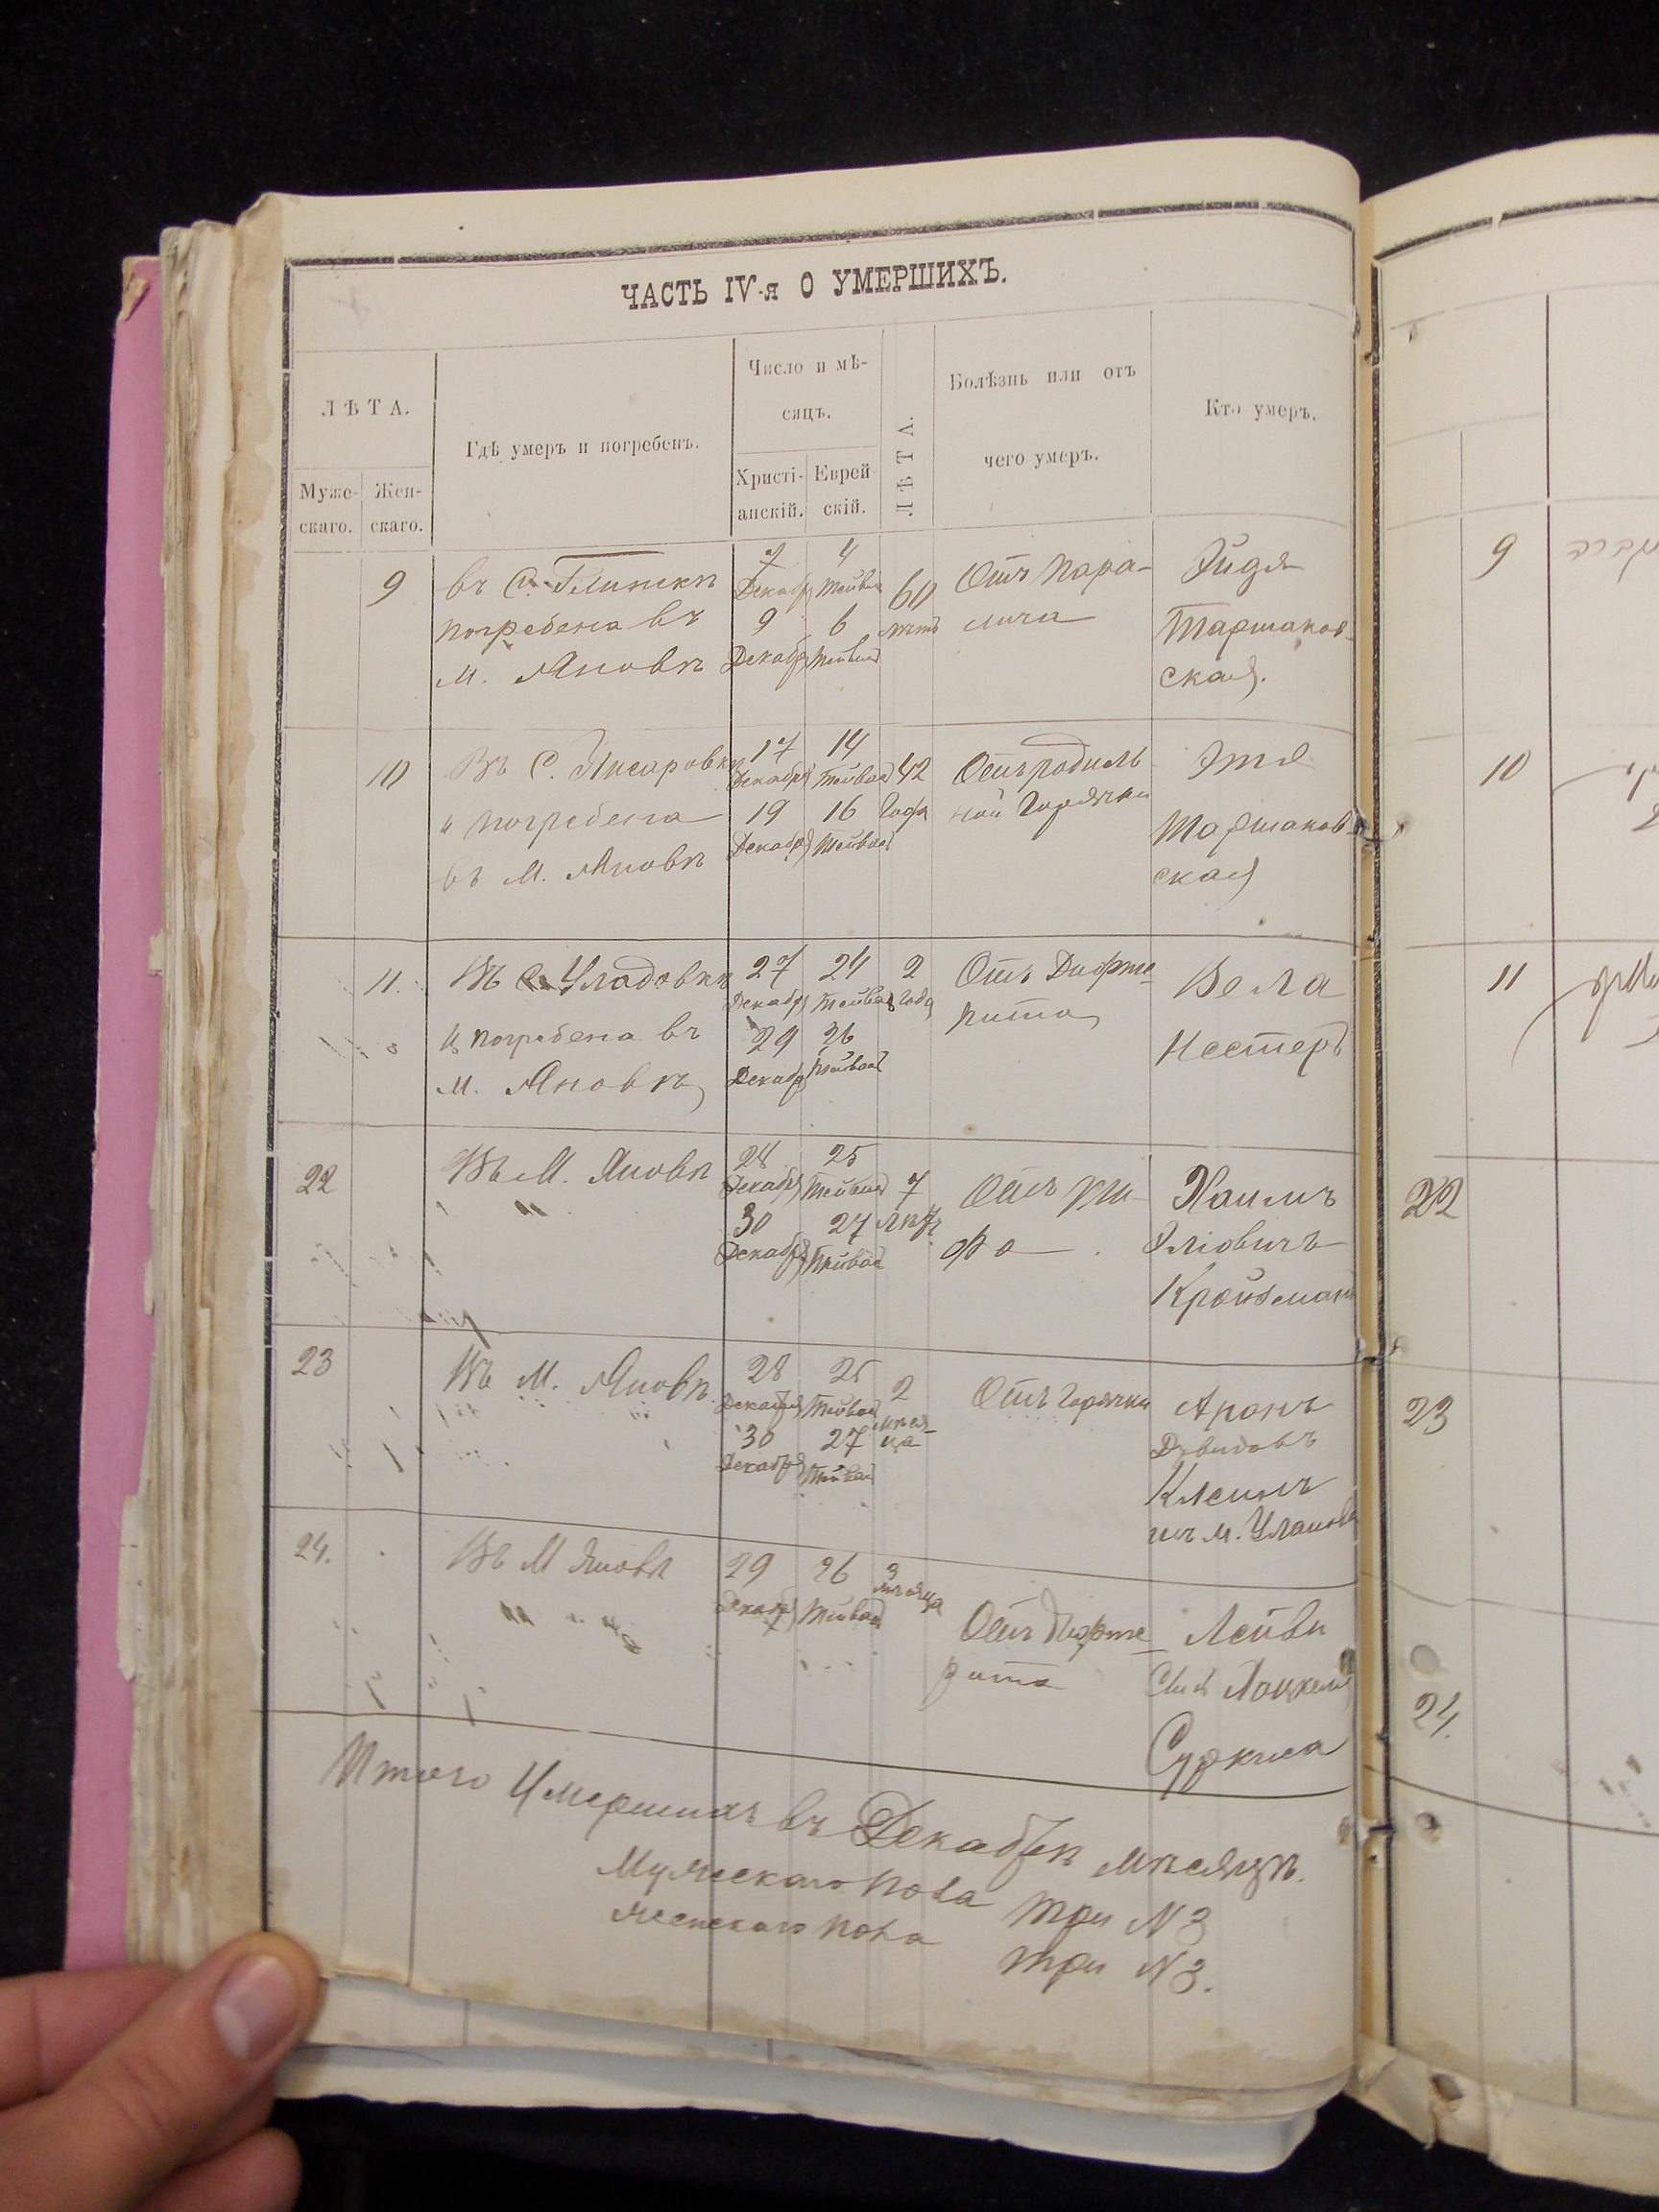 ЧАСТЬ IV-я О УМЕРШИХЪ.
ЛѢТА.
Муже-
скаго.
Жен-
скаго.
Гдѣ умеръ и погребенъ.
Число и мѣ-
сяцъ.
Христі-
анскій.
Еврей-
скій.
ЛѢТА.
Болѣзнь или отъ
чего умеръ.
Кто умеръ.
9
въ С. Глинскѣ
погребена въ
м. Яновѣ
7 Декабр
9 Декабр
4
6
60
лѣтъ
Отъ пара-
лича
Эйдля
Таршаков-
ская.
10
Въ С. Писаровкѣ
и погребена
въ М. Яновѣ
17 Декабря
19 Декабря
14 Тейваѳ
16 Тейваѳ
42
Года
Отъ родиль
ной Горячки
Этя
Таршаков-
ская
11.
Въ Уладовкѣ
и погребена въ
м. Яновѣ
27 Декабр
29 Декабр
24
26
2
года
Отъ Дифте-
рита
Бела
Нестеръ
22
Въ М. Яновѣ
28 Декабр
30 Декабря
25
27
7
лѣтъ
Отъ ти-
фа
Хаимъ
Эліовичъ
Кройзманъ
23
Въ М. Яновѣ
28 Декабря
30 Декабря
25
27
2
мѣся-
ца
Отъ Горячки
Аронъ
Давидовъ
Клеинъ
изъ м. Уланова
24.
Въ М Яновѣ
29 Декабр
26
3
мѣсяца
Отъ Дифте-
рита
Лейви
Сынъ
Суркиса
Итого Умершихъ въ Декабрѣ мѣсяцѣ.
Мужескаго пола три N 3
женскаго пола три N 3.
9
10
11
22
23
24.